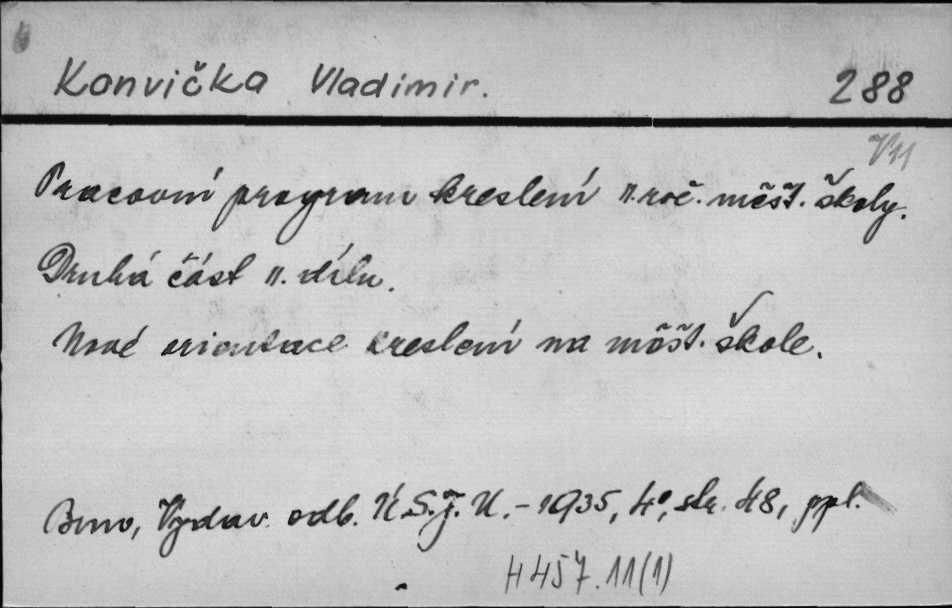 Konvička Vladimir.
288
Pracovní program kreslení II. roč. měšť. školy.
Druhá část II. dílu.
Nové orientace kreslení na měšť. škole.
Brno, Vydav. odb. Ú.S.J.U. - 1935, 4°, str. 48, ppl.
H 457.11(1)